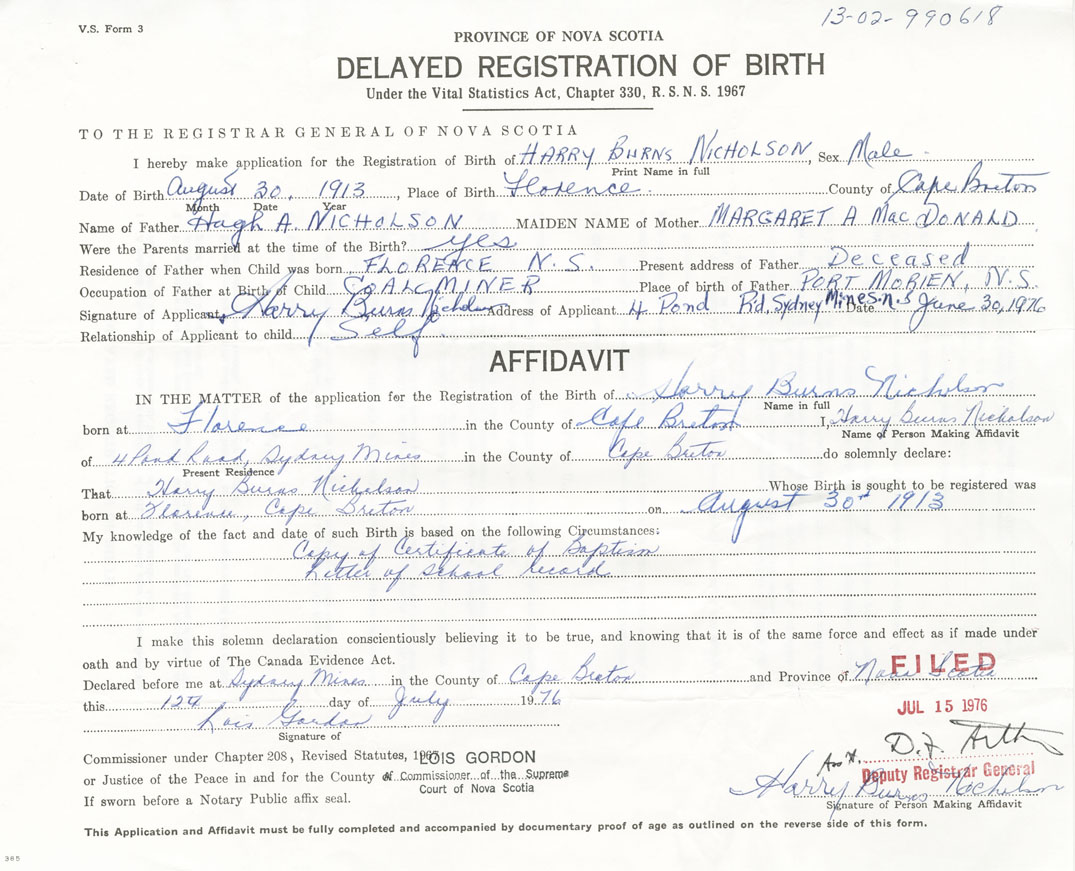 13-02-990618
V.S. Form 3
PROVINCE OF NOVA SCOTIA
DELAYED REGISTRATION OF BIRTH
Under the Vital Statistics Act, Chapter 330, R.S.N.S. 1967
TO THE REGISTRAR GENERAL OF NOVA SCOTIA
I hereby make application for the Registration of Birth of HARRY BURNS NICHOLSON, Sex Male
Print Name in full
Date of Birth August 30, 1913, Place of Birth Florence. County of Cape Breton
Month Date Year
Name of Father Hugh A. NICHOLSON MAIDEN NAME of Mother MARGARET A MacDONALD
Were the Parents married at the time of the Birth? yes
Residence of Father when Child was born FLORENCE N.S. Present address of Father Deceased
Occupation of Father at Birth of Child COAL MINER Place of birth of Father PORT MORIEN, N.S.
Signature of Applicant Harry Burns Nicholson Address of Applicant 4 Pond Rd, Sydney Mines. n.s Date June 30, 1976
Relationship of Applicant to child Self
AFFIDAVIT
IN THE MATTER of the application for the Registration of the Birth of Harry Burns Nicholson
Name in full
born at Florence in the County of Cape Breton I, Harry Burns Nicholson
Name of Person Making Affidavit
of 4 Pond Road, Sydney Mines in the County of Cape Breton do solemnly declare:
Present Residence
That Harry Burns Nicholson Whose Birth is sought to be registered was
born at Florence, Cape Breton on August 30th 1913
My knowledge of the fact and date of such Birth is based on the following Circumstances:
Copy of Certificate of Baptism
Letter of School record
I make this solemn declaration conscientiously believing it to be true, and knowing that it is of the same force and effect as if made under
oath and by virtue of The Canada Evidence Act.
Declared before me at Sydney Mines in the County of Cape Breton and Province of Nova Scotia
FILED
this 12th day of July 1976
JUL 15 1976
Lois Gordon
Signature of
Commissioner under Chapter 208, Revised Statutes, 1967 LOIS GORDON
or Justice of the Peace in and for the County of Commissioner of the Supreme
Court of Nova Scotia
If sworn before a Notary Public affix seal.
Deputy Registrar General
Harry Burns Nicholson
Signature of Person Making Affidavit
This Application and Affidavit must be fully completed and accompanied by documentary proof of age as outlined on the reverse side of this form.
305